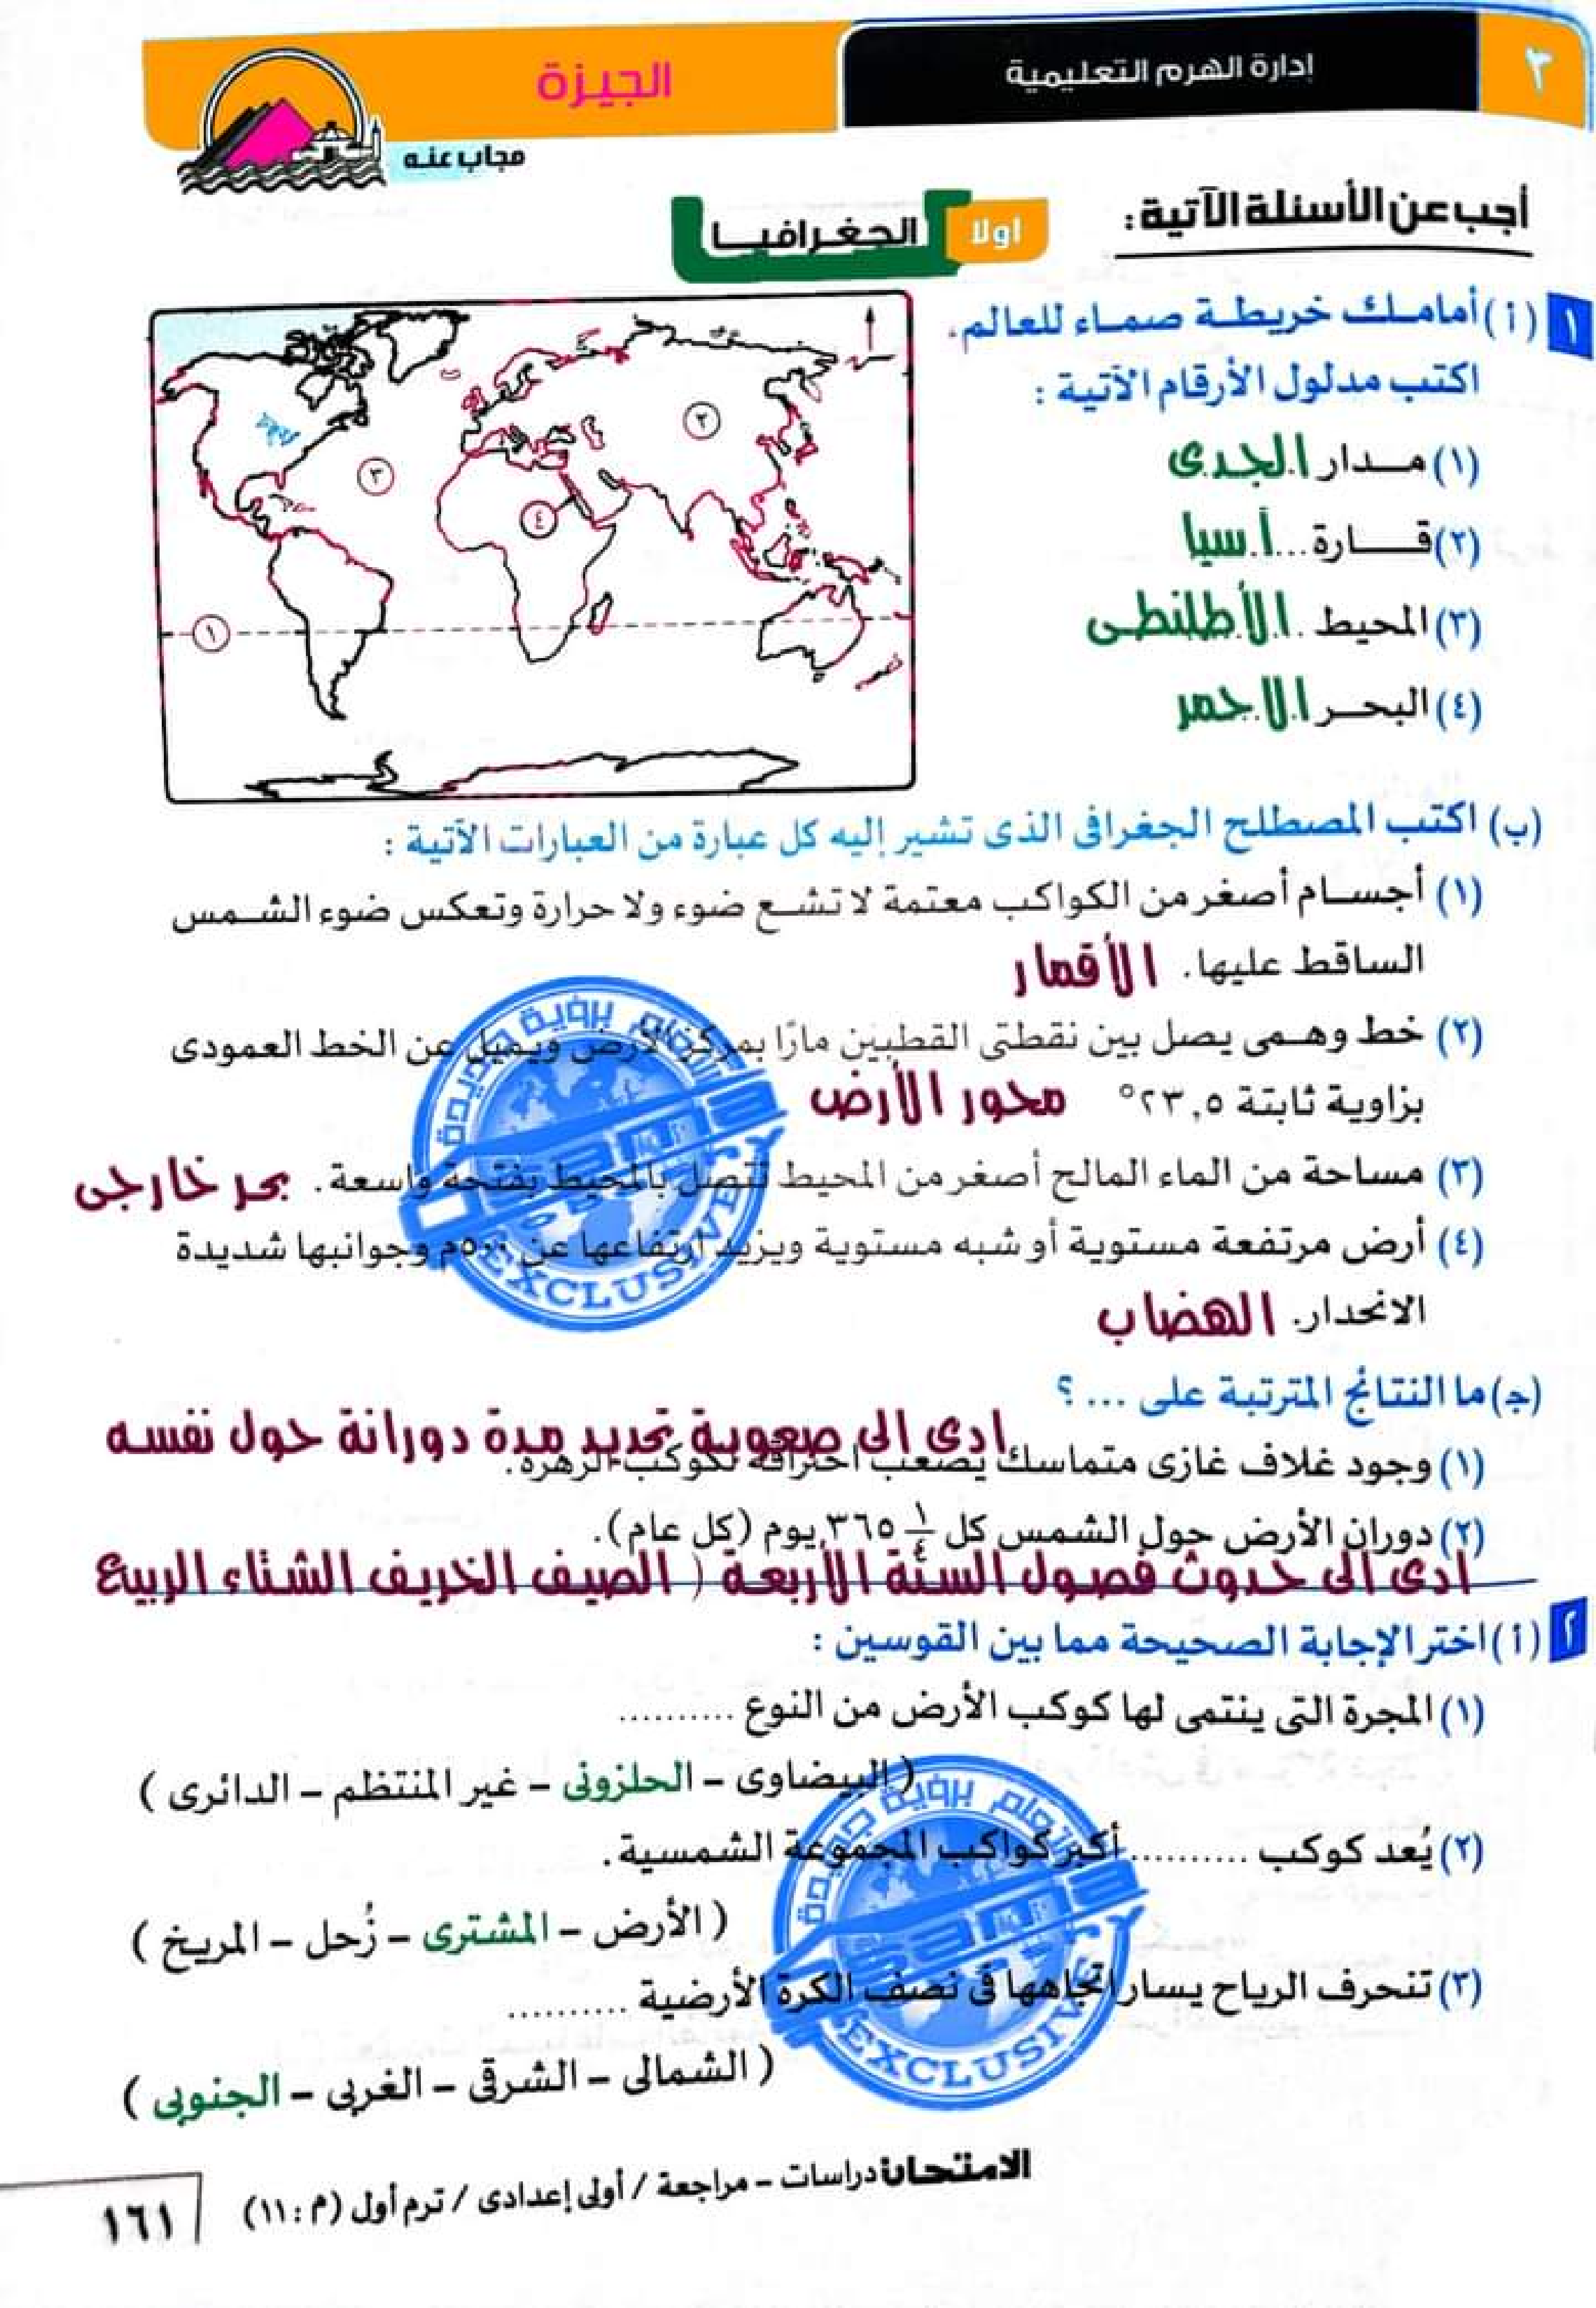 ٣
إدارة الهرم التعليمية
الجيزة
مجاب عنه
أجب عن الأسئلة الآتية:
اولا الجغرافيا
١ (أ) أمامك خريطة صماء للعالم،
اكتب مدلول الأرقام الآتية :
(١) مدار الجدى
(٢) قارة... أسيا
(٣) المحيط . الأطلنطى
(٤) البحر الاحمر
١
٢
٣
٤
(ب) اكتب المصطلح الجغرافى الذى تشير إليه كل عبارة من العبارات الآتية :
(١) أجسام أصغر من الكواكب معتمة لا تشع ضوء ولا حرارة وتعكس ضوء الشمس
الساقط عليها. الأقمار
(٢) خط وهمى يصل بين نقطتى القطبين مارًا بمركز الأرض ويميل عن الخط العمودى
بزاوية ثابتة ٢٣,٥° محور الأرض
(٣) مساحة من الماء المالح أصغر من المحيط تتصل بالمحيط بفتحة واسعة. بحر خارجى
(٤) أرض مرتفعة مستوية أو شبه مستوية ويزيد ارتفاعها عن ٥٠٠م وجوانبها شديدة
الانحدار. الهضاب
(جـ) ما النتائج المترتبة على ... ؟
ادى الى صعوبة تحديد مدة دورانة حول نفسه
(١) وجود غلاف غازى متماسك يصعب اختراقه لكوكب الزهرة.
(٢) دوران الأرض حول الشمس كل ٣٦٥ ١/٤ يوم (كل عام).
ادى الى حدوث فصول السنة الأربعة ( الصيف الخريف الشتاء الربيع
٢ (أ) اختر الإجابة الصحيحة مما بين القوسين :
(١) المجرة التى ينتمى لها كوكب الأرض من النوع ..........
( البيضاوى – الحلزونى – غير المنتظم – الدائرى )
(٢) يُعد كوكب .......... أكبر كواكب المجموعة الشمسية.
( الأرض – المشترى – زُحل – المريخ )
(٣) تنحرف الرياح يسار اتجاهها فى نصف الكرة الأرضية ..........
( الشمالى – الشرقى – الغربى – الجنوبى )
الامتحان دراسات – مراجعة / أولى إعدادى / ترم أول (م : ١١)
١٦١
EXCLUSIVE
EXCLUSIVE